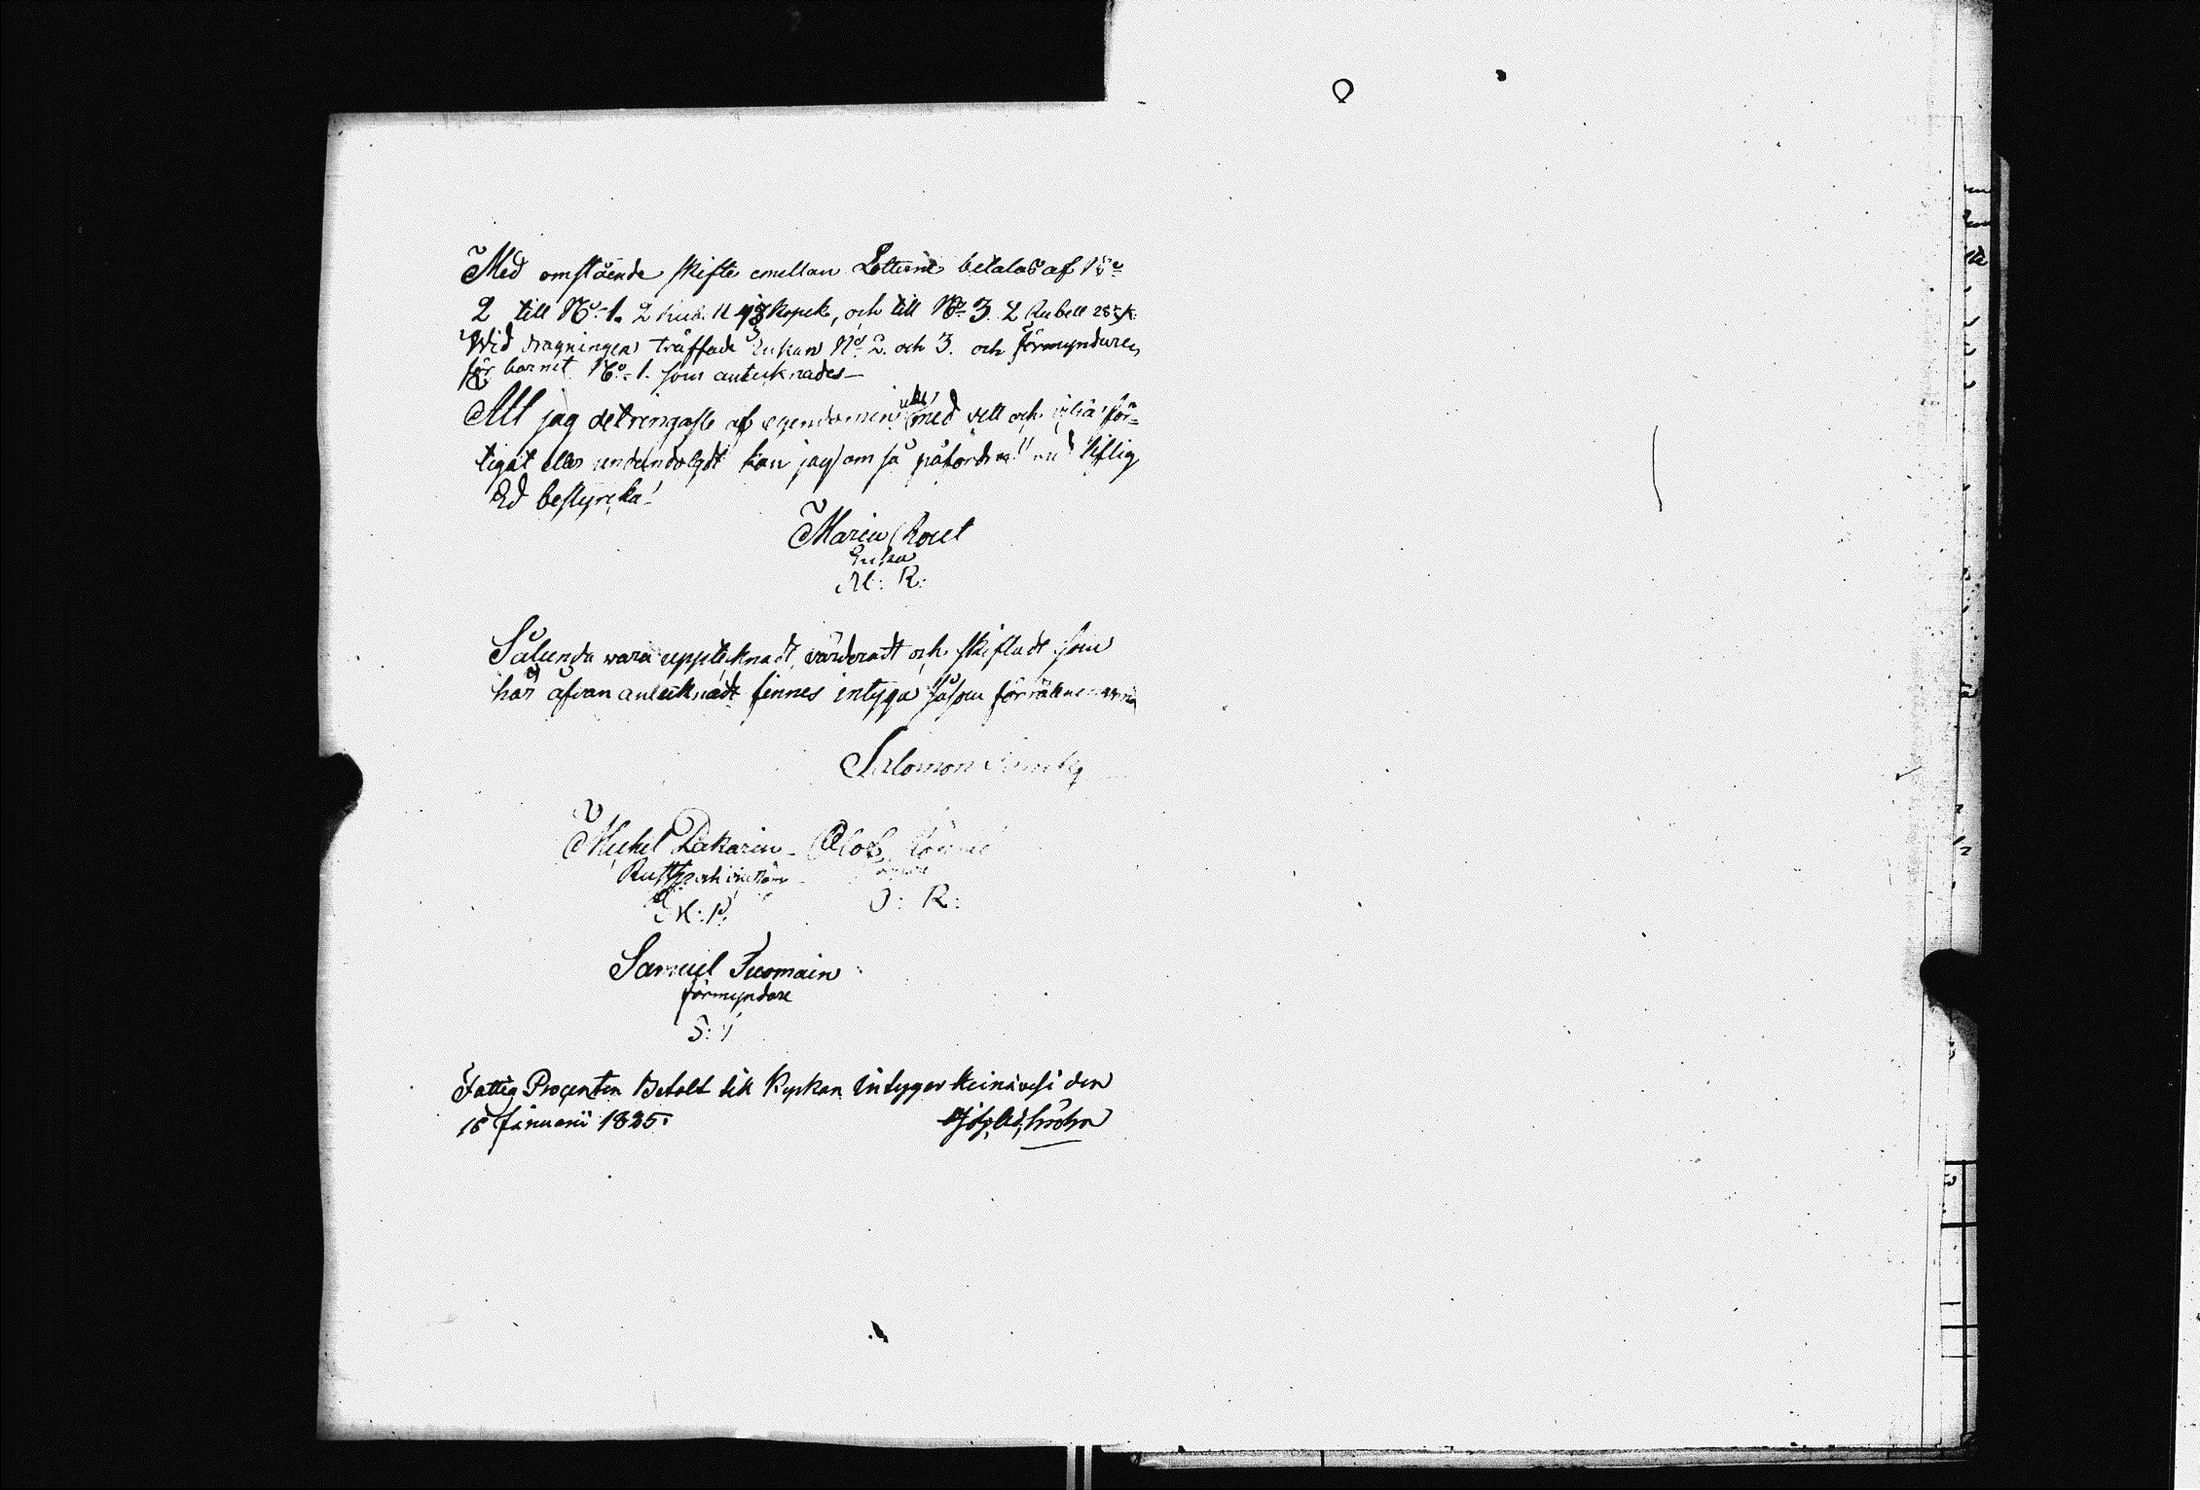 Med omstående skifte emellan Lotterne betalas af N:o
2 till N:o 1. 2 Rub. 11 kopek, och till N:o 3. 2 Rubell 28 k:
Wid dragningen träffade Enkan N:o 2. och 3. och förmyndaren
för barnet N:o 1. som antecknades
Att jag det ringaste af egendomen icke med vett och vilja för=
tigat eller undandolgdt kan jag om så påfordras med liflig
Ed bestyrcka!
Maria
Enka
M: R:
Sålunda wara upptecknadt, värderadt och skiftadt som
här åfvan antecknadt finnes intyga såsom förrättningsmän
Salomon
Michel Zakarin Olof
M: P. O: R:
Samuel Tuomain
förmyndare
S: T
Fattig Procenten Betalt till Kyrkan intygar Heinävesi den
18 Januarii 1835.